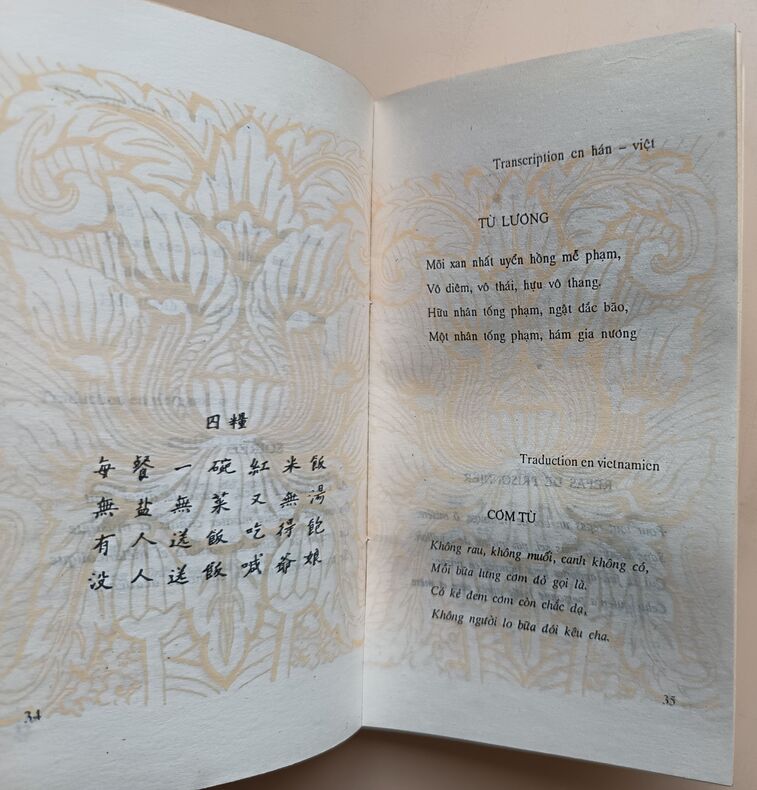 囚糧
每餐一碗紅米飯
無盐無菜又無湯
有人送飯吃得飽
没人送飯喊爺娘
34
Transcription en hán – việt
TÙ LƯƠNG
Mỗi xan nhất uyển hồng mễ phạm,
Vô diêm, vô thái, hựu vô thang.
Hữu nhân tống phạm, ngật đắc bão,
Một nhân tống phạm, hám gia nương
Traduction en vietnamien
CƠM TÙ
Không rau, không muối, canh không có,
Mỗi bữa lưng cơm đỏ gọi là.
Có kẻ đem cơm còn chắc dạ,
Không người lo bữa đói kêu cha.
35